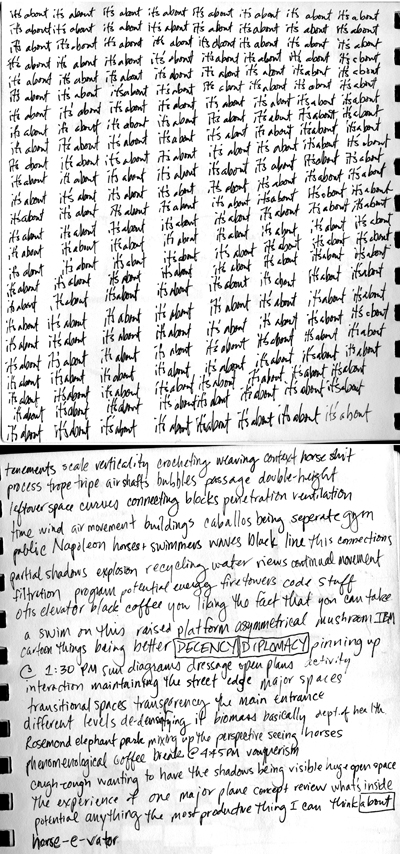 it's about it's about it's about it's about it's about it's about it's about it's about
it's about it's about it's about it's about it's about it's about it's about it's about
it's about it's about it's about it's about it's about it's about it's about it's about
it's about it's about it's about it's about it's about it's about it's about it's about
it's about it's about it's about it's about it's about it's about it's about it's about
it's about it's about it's about it's about it's about it's about it's about it's about
it's about it's about it's about it's about it's about it's about it's about it's about
it's about it's about it's about it's about it's about it's about it's about it's about
it's about it's about it's about it's about it's about it's about it's about it's about
it's about it's about it's about it's about it's about it's about it's about it's about
it's about it's about it's about it's about it's about it's about it's about it's about
it's about it's about it's about it's about it's about it's about it's about it's about
it's about it's about it's about it's about it's about it's about it's about it's about
it's about it's about it's about it's about it's about it's about it's about it's about
it's about it's about it's about it's about it's about it's about it's about it's about
it's about it's about it's about it's about it's about it's about it's about it's about
it's about it's about it's about it's about it's about it's about it's about it's about
it's about it's about it's about it's about it's about it's about it's about it's about
it's about it's about it's about it's about it's about it's about it's about it's about
it's about it's about it's about it's about it's about it's about it's about it's about
it's about it's about it's about it's about it's about it's about it's about it's about
it's about it's about it's about it's about it's about it's about it's about it's about
it's about it's about it's about it's about it's about it's about it's about it's about
it's about it's about it's about it's about it's about it's about it's about it's about
it's about it's about it's about it's about it's about it's about it's about it's about
tenements scale verticality crocheting weaving context horse shit
process trope tripe airshafts bubbles passage double-height
leftover space curves connecting blocks penetration ventilation
time wind air movement buildings caballos being seperate gym
public Napoleon horses + swimmers waves black line this connections
partial shadows explosion recycling water views continual movement
filtration program potential energy fire towers code stuff
otis elevator black coffee you liking the fact that you can take
a swim on this raised platform asymmetrical mushroom IBM
cartoon things being better DECENCY DIPLOMACY pinning up
@ 1:30 PM sun diagrams dressage open plans activity
interaction maintaining the street edge major spaces
transitional spaces transparency the main entrance
different levels de-demonizing it biomass basically dept. of health
Rosemond elephant prank mixing up the perspective seeing horses
phenomenological coffee break @ 4:45PM voyeurism
cough-cough wanting to have the shadows being visible huge open space
the experience of one major plane concept review what's inside
potential anything the most productive thing I can think about
horse-e-vator